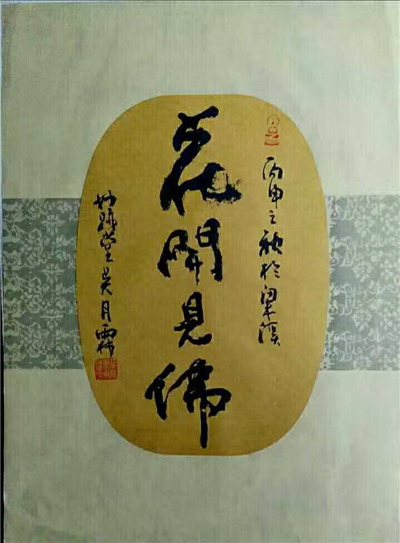 丙申之秋於梁溪
花開見佛
妙堂吴月霖